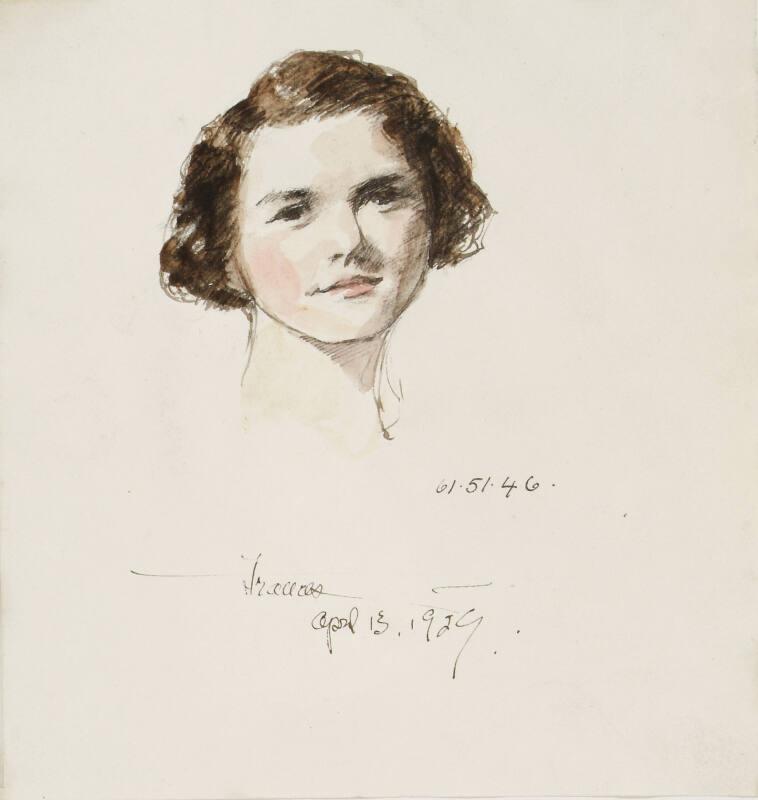 61.51.46.
Frances
April 13, 1929.